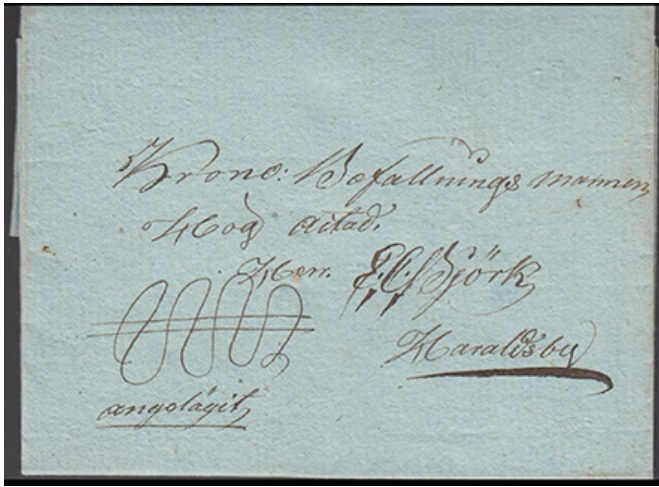 Krono: Befallnings mannen,
Hög Aitad.
Herr. Björk,
Haraldsby
angelägit,